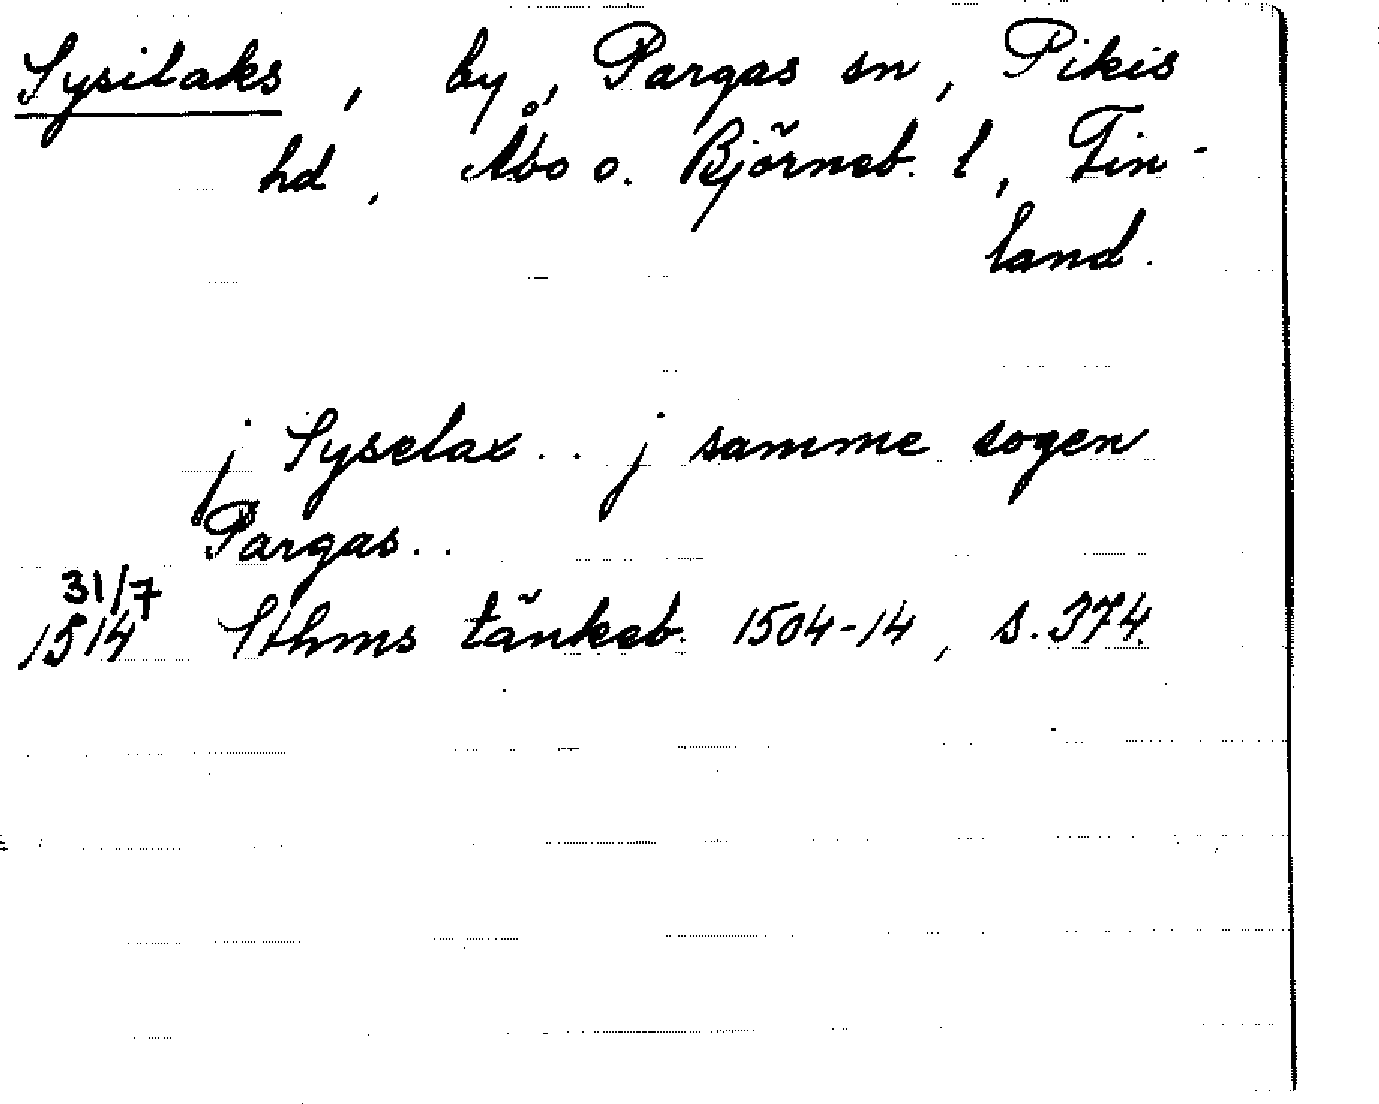 Sysilaks, by, Pargas sn, Pikis
hd, Åbo o. Björneb. l, Fin-
land.
j Syselax.. j samme sogen
Pargas..
31/7
1514 Sthms tänkeb. 1504-14, s. 374.